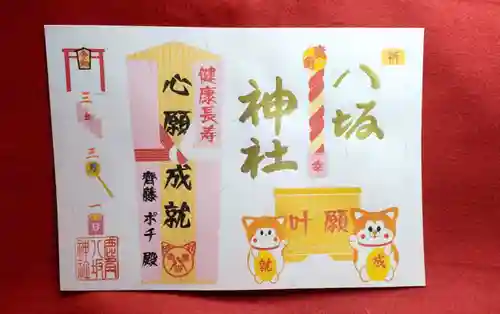 祈
八坂
神社
幸
願
叶
成
就
健康長寿
心願成就
齊藤 ポチ 殿
三
三
一
日
八坂
神社